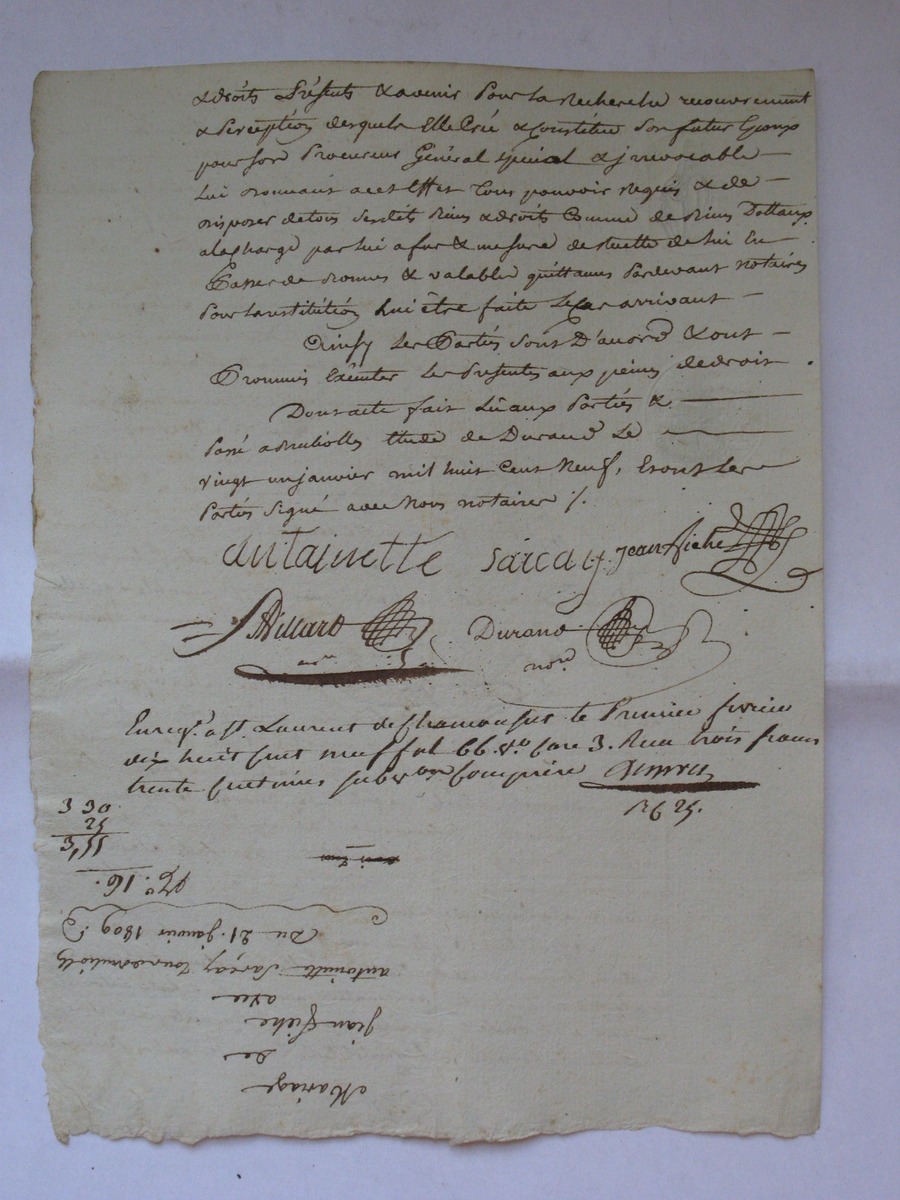 & droits Présents & avenir Pour la Recherche recouvrement
& Perception desquels Elle Crée & Constitue Son futur Epoux
pour son Procureur Général spécial & jrrevocable
Lui Donnant a cet Effet Tous pouvoir requis & de
Disposer de tous Sesdits Biens & droits Comme de Biens Dottaux
a la Charge par Lui a fur & mesure de Recette de Lui En
Passer de Bonnes & valables quittances Pardevant notaires
Pour la restitution Lui être faite Le Cas arrivant
Ainsy Les Parties Sont D'accord & ont
Promis Exécuter Les Présentes aux peines de droit
Dont acte fait Lû aux Parties &
Passé a Etude de Durand Le
vingt un janvier mil huit Cent Neuf, Et ont Les
Parties Signé avec Nous notaires ./.
antainette Sarcay jean
Durand
not.re
Enreg.é a St. Laurent de Chamousset le Premier fevrier
dix huit cent neuf fol 66 v.o case 3. Reçu trois francs
trente centimes subv.on Comprise
3 30
25
3 55
N.o 16.
Du 21 janvier 1809
antoinette Sarçay
avec
jean
de
Mariage